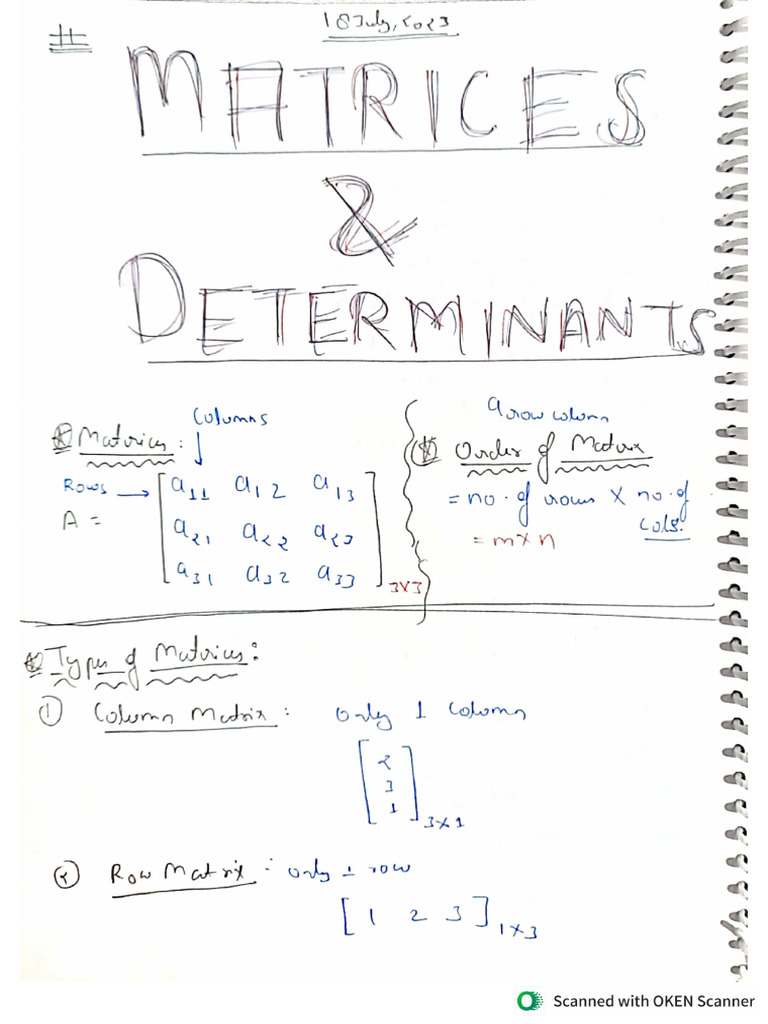 18 July, 2023
# MATRICES
&
DETERMINANTS
Matrices:
Columns
↓
Rows →
A = [ a11 a12 a13
a21 a22 a23
a31 a32 a33 ] 3×3
a row column
Order of Matrix
= no. of rows × no. of
cols.
= m×n
Types of Matrices:
① Column Matrix : only 1 column
[ 2
3
1 ] 3×1
② Row Matrix : only 1 row
[ 1 2 3 ] 1×3
Scanned with OKEN Scanner